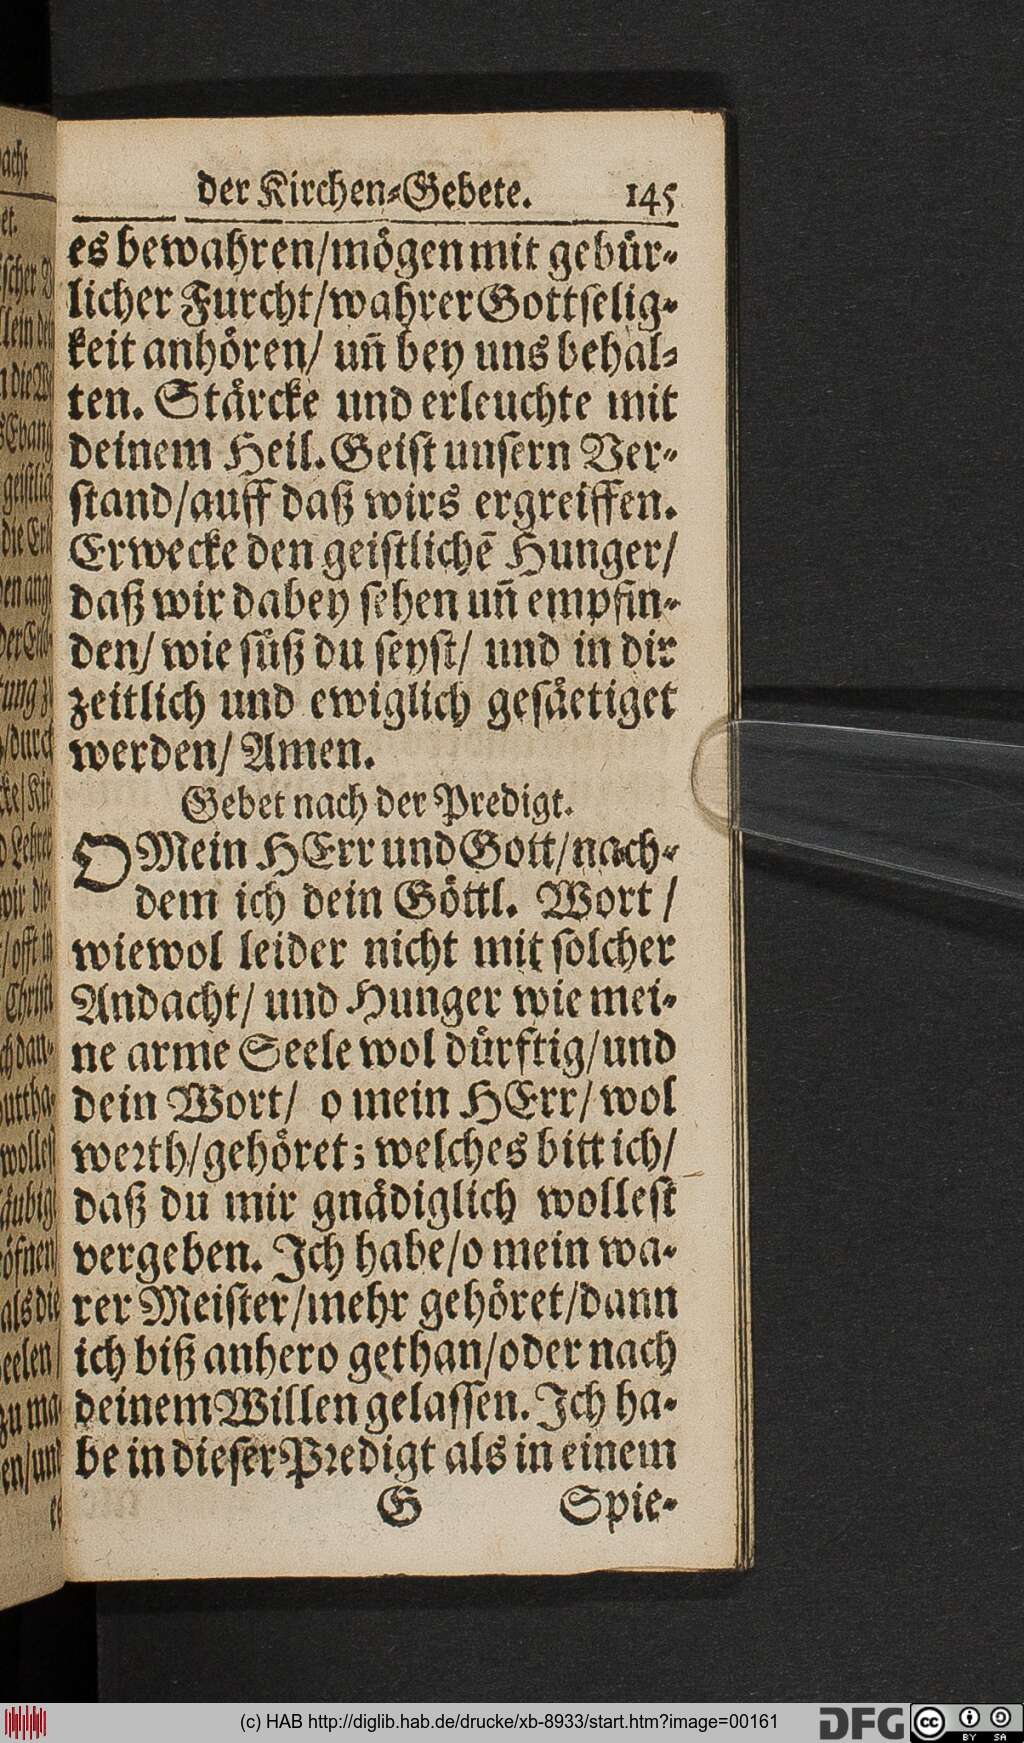 der Kirchen-Gebete. 145
es bewahren/mögen mit gebür-
licher Furcht/wahrer Gottselig-
keit anhören/ un̄ bey uns behal-
ten. Stärcke und erleuchte mit
deinem Heil. Geist unsern Ver-
stand/auff daß wirs ergreiffen.
Erwecke den geistlichē Hunger/
daß wir dabey sehen un̄ empfin-
den/ wie süß du seyst/ und in dir
zeitlich und ewiglich gesäetiget
werden/ Amen.
Gebet nach der Predigt.
O Mein HErr und Gott/nach-
dem ich dein Göttl. Wort /
wiewol leider nicht mit solcher
Andacht/ und Hunger wie mei-
ne arme Seele wol dürftig/und
dein Wort/ o mein HErr/ wol
werth/gehöret; welches bitt ich/
daß du mir gnädiglich wollest
vergeben. Ich habe/o mein wa-
rer Meister/mehr gehöret/dann
ich biß anhero gethan/oder nach
deinem Willen gelassen. Ich ha-
be in dieser Predigt als in einem
G Spie-
(c) HAB http://diglib.hab.de/drucke/xb-8933/start.htm?image=00161 DFG cc BY SA